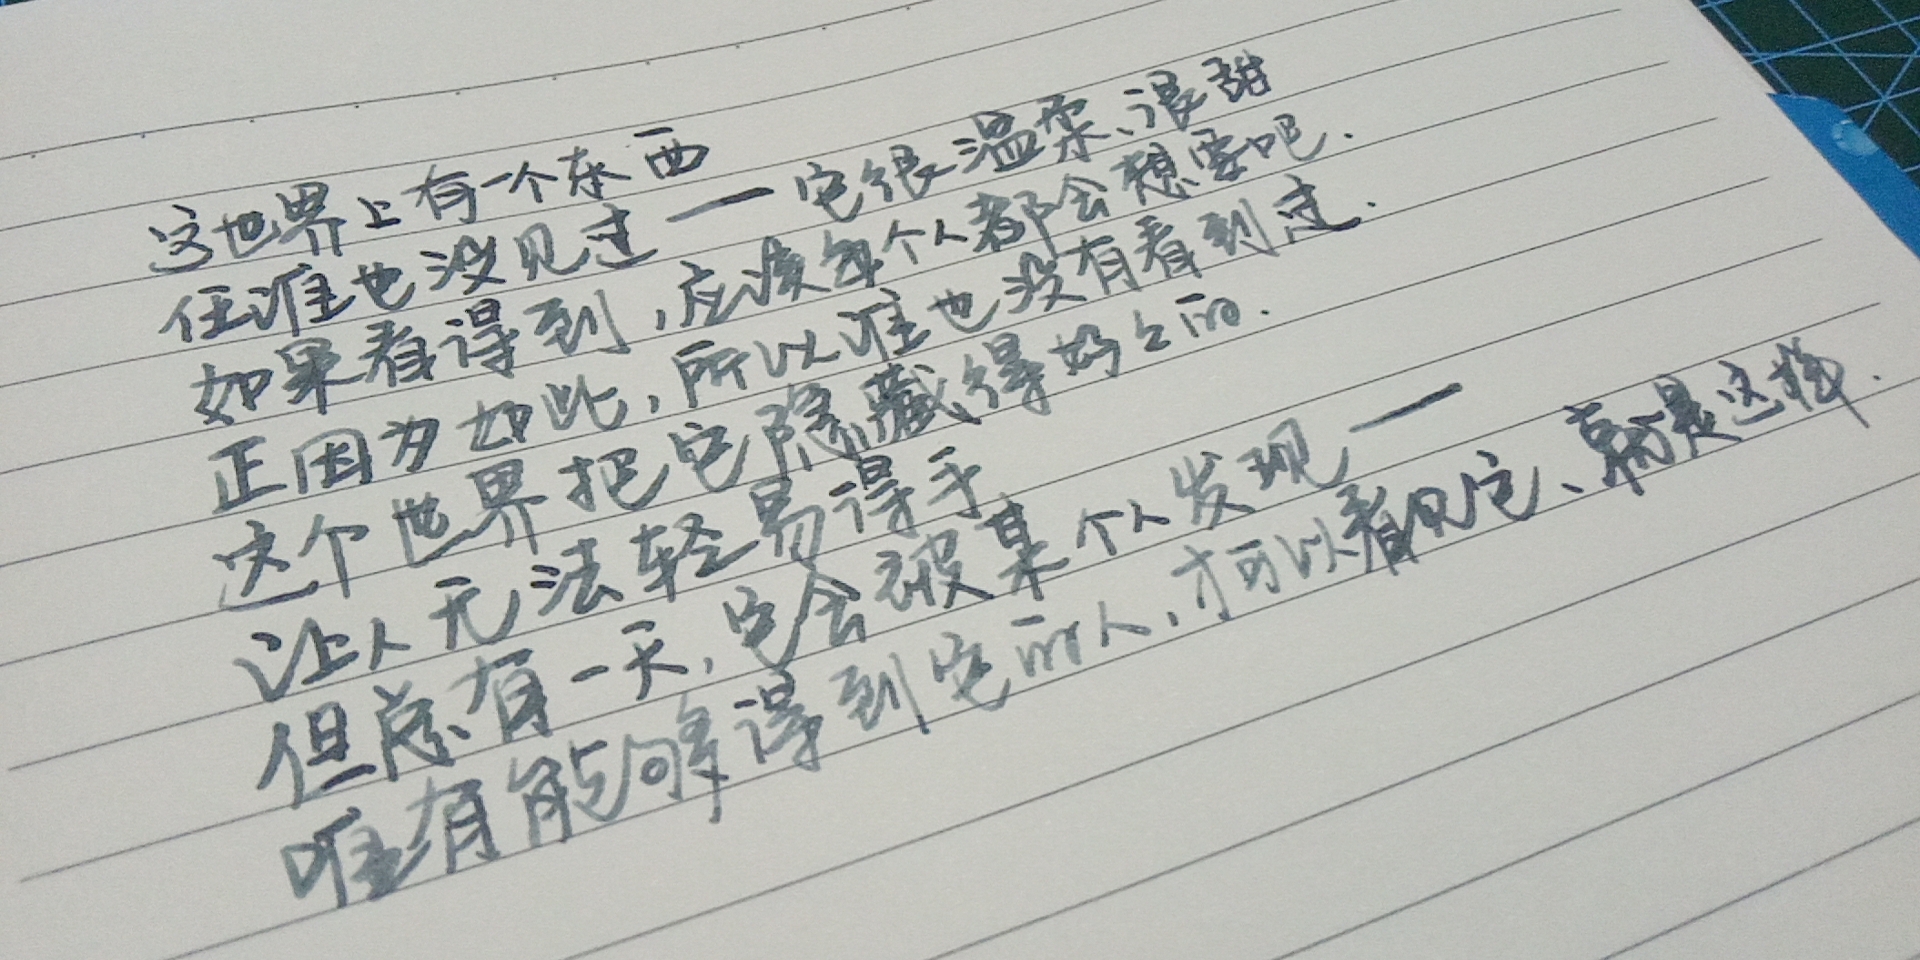 这世界上有一个东西
任谁也没见过——它很温柔、很甜
如果看得到,应该每个人都会想要吧.
正因为如此,所以谁也没有看到过.
这个世界把它隐藏得好好的.
让人无法轻易得手
但总有一天,它会被某个人发现——
唯有能够得到它的人,才可以看见它、就是这样.